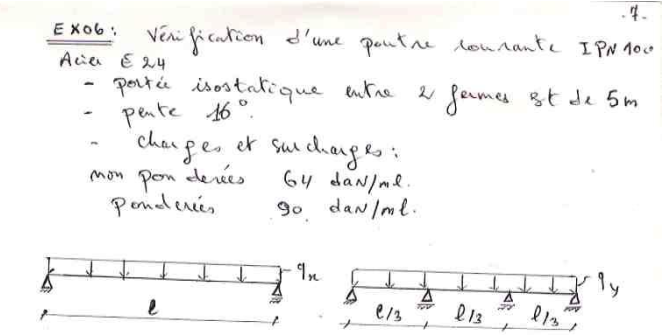 .7.
EX06: Vérification d'une poutre courante IPN 100
Acier E 24
- portée isostatique entre 2 fermes est de 5m
- pente 16°.
- charges et surcharges:
non ponderées 64 daN/ml.
Ponderées 90 daN/ml.
qx qy
l l/3 l/3 l/3